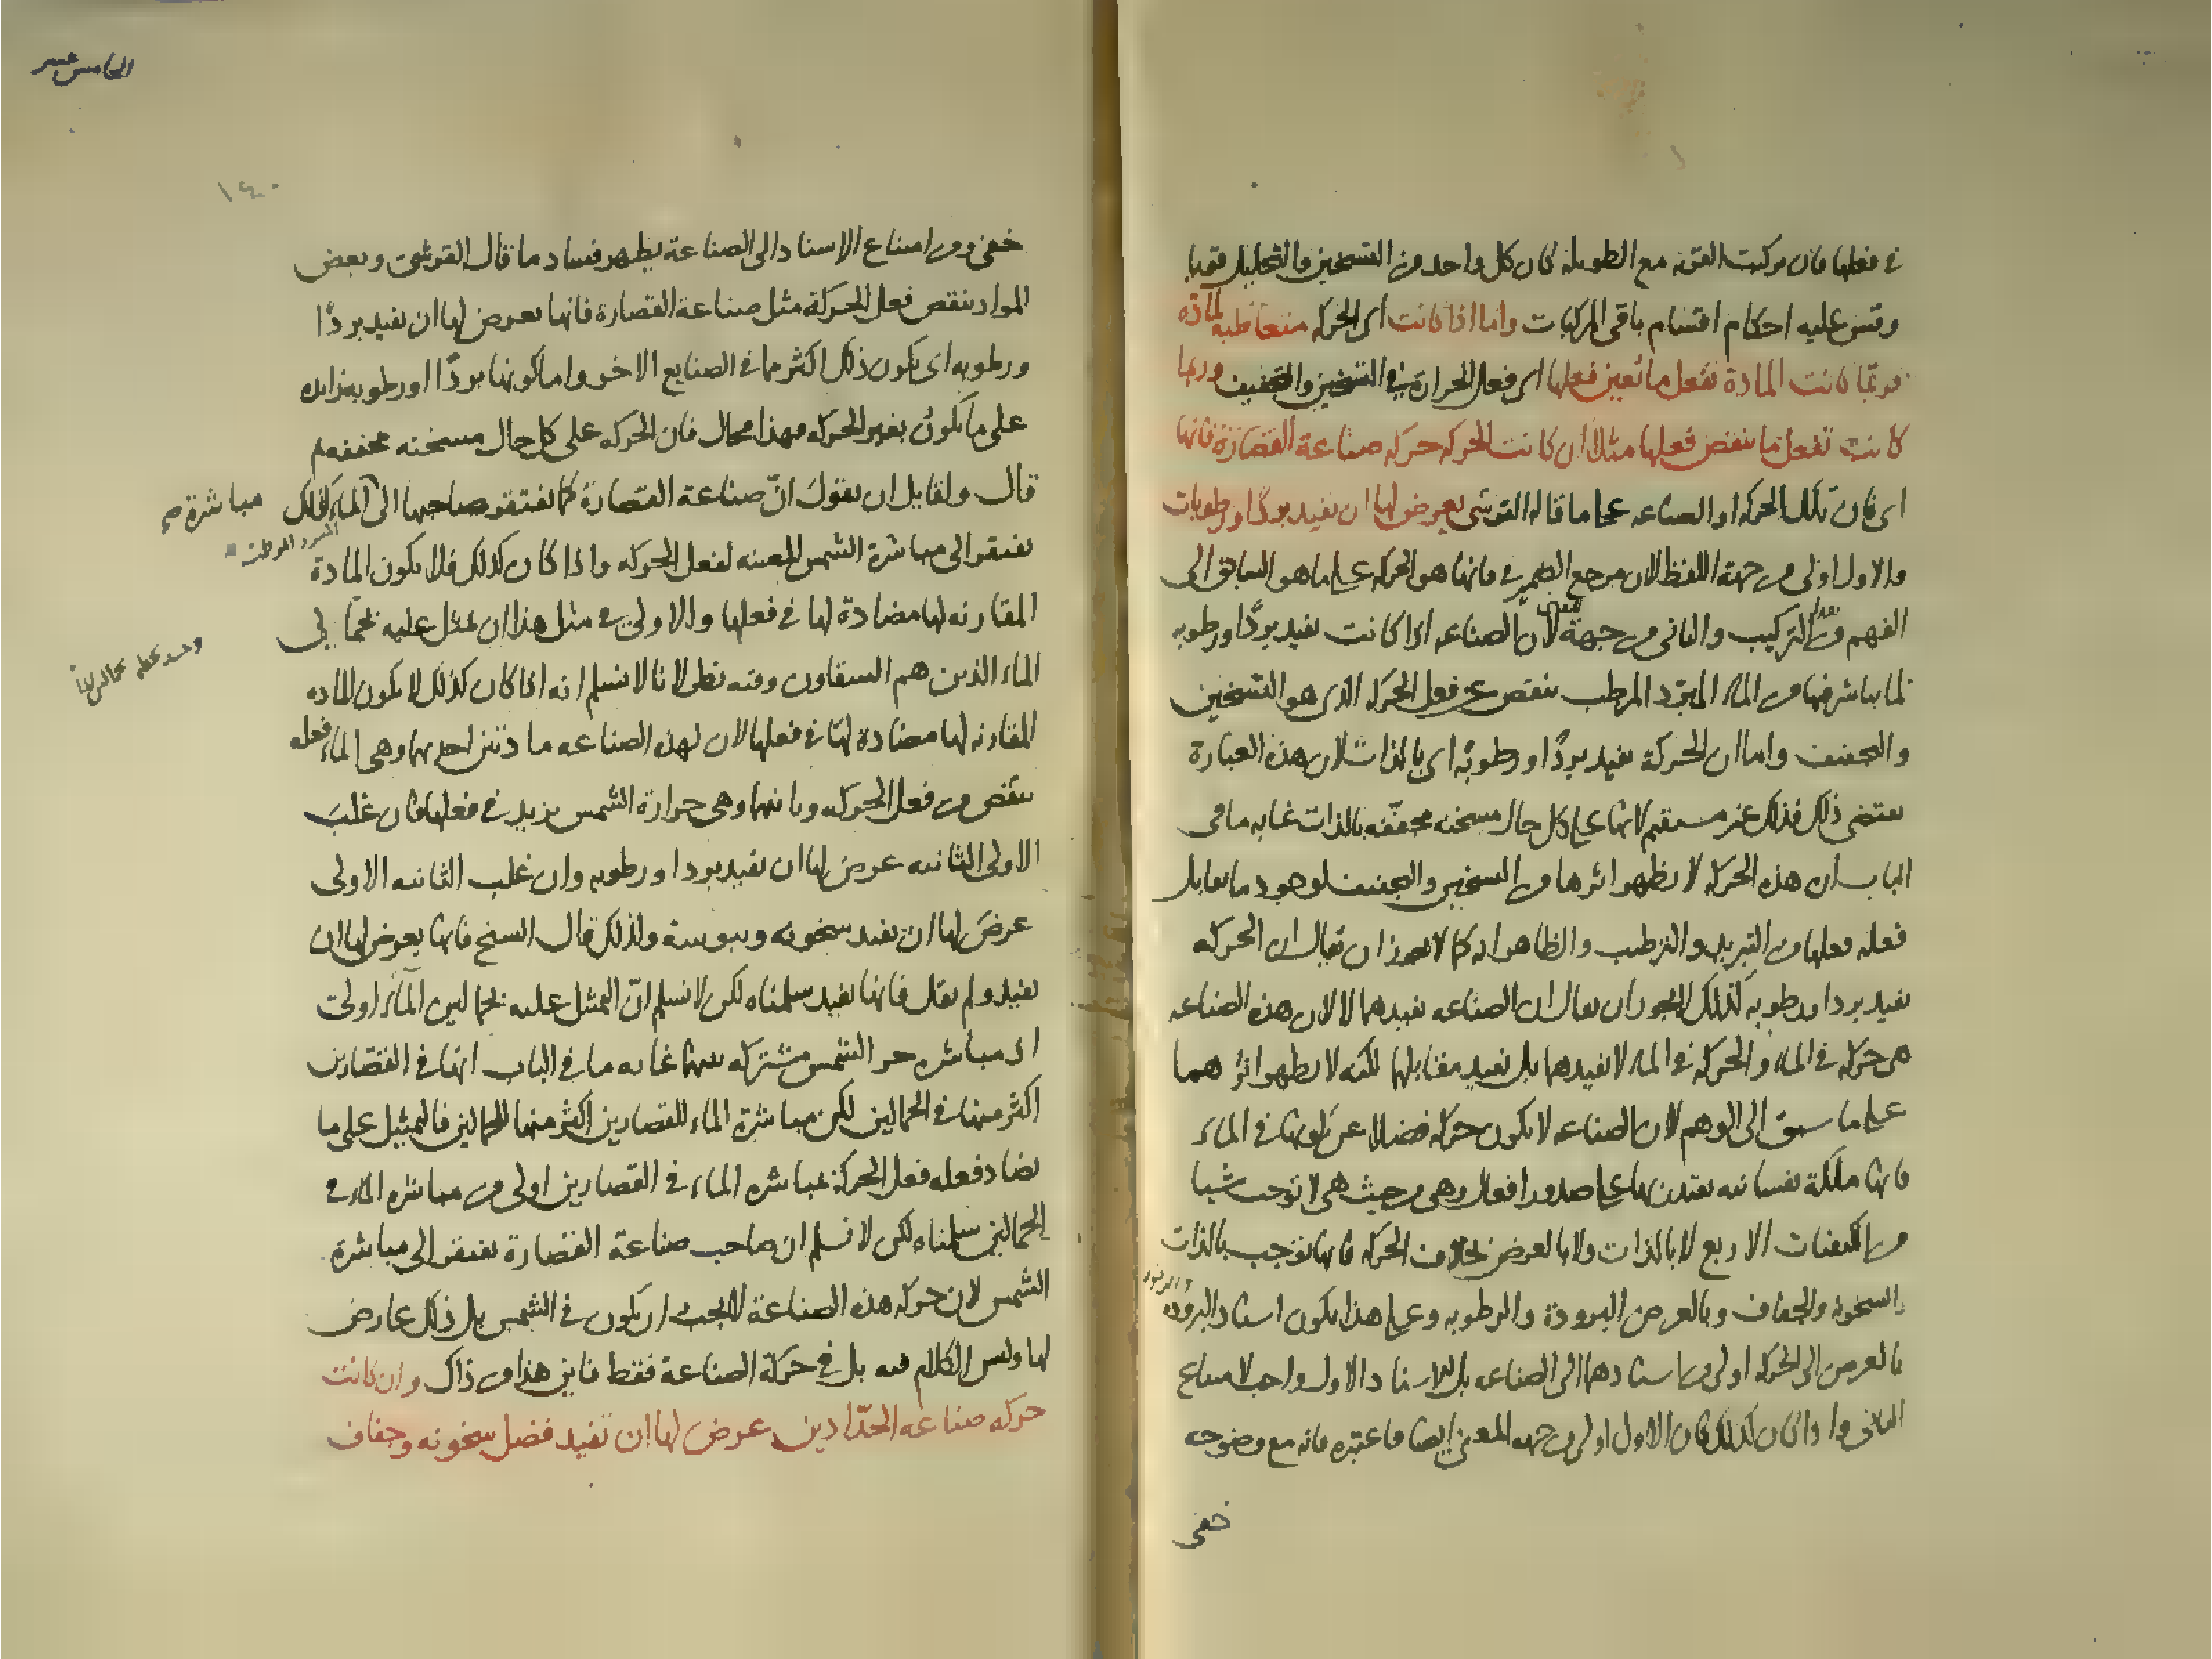 في فعلها فان تركبت القوية مع الطويلة كان كل واحد من التسخين والتحليل قويا
وقس عليه احكام اقسام باقي المركبات واما اذا كانت اى الحركة متعاطية لمادة
فربما كانت المادة تفعل ما يعين فعلها اى فعل الحرارة في التسخين والتجفيف وربما
كانت تفعل ما ينقص فعلها مثلا ان كانت الحركة حركة صناعة القصارة فانها
اى فان تلك الحركة او الصناعة على ما قاله القرشى يعرض لها ان يفيد بردًا ورطوبات
والاول اولى من جهة اللفظ لان مرجع الضمير في فانها هو الحركة على ما هو السابق الى
الفهم من التركيب والثاني من جهة المعنى لان الصناعة اذا كانت تفيد بردًا ورطوبة
لما يباشر فيها من الماء المبرد المرطب ينقص عن فعل الحركة الذى هو التسخين
والتجفيف واما ان الحركة تفيد بردًا ورطوبة اى بالذات لان هذه العبارة
يقتضى ذلك فذلك غير مستقيم لانها على كل حال مسخنة مجففة بالذات غاية ما في
الباب ان هذه الحركة لا يظهر اثرها من التسخين والتجفيف لوجود ما يقابل
فعله فعلها من التبريد والترطيب والظاهر انه كما لا يجوز ان يقال ان الحركة
تفيد بردا ورطوبة كذلك لا يجوز ان يقال ان الصناعة تفيدهما لا لان هذه الصناعة
هي حركة في الماء والحركة في الماء لا تفيدهما بل تفيد مقابلها لكنه لا يظهر اثرهما
على ما سبق الى الوهم لان الصناعة لا يكون حركة فضلا عن كونها في الماء
فانها ملكة نفسانية يقتدر بها على صدور افعال وهى من حيث هى لا توجب شيا
من الكيفيات الاربع لا بالذات ولا بالعرض بخلاف الحركة فانها توجب بالذات
السخونة والجفاف وبالعرض البرودة والرطوبة وعلى هذا يكون اسناد البرودة
بالعرض الى الحركة اولى من اسنادهما الى الصناعة بل الاسناد الاول واجب لامتناع
الثاني واذا كان كذلك كان الاول اولى من جهة المعنى ايضا فاعتبره فانه مع وضوحه
خفى
الخامس عشر
١٤٠
خفى ومن امتناع الاسناد الى الصناعة يظهر فساد ما قال القرشى وبعض
المواد ينقص فعل الحركة مثل صناعة القصارة فانها يعرض لها ان تفيد بردًا
ورطوبة اى يكون ذلك اكثر مما في الصنايع الاخر واما كونها بردًا او رطوبة زايدة
على ما يكون بغير الحركة فهذا محال فان الحركة على كل حال مسخنة مجففة ثم
قال ولقايل ان يقول انّ صناعة القصارة كما يفتقر صاحبها الى الماء كذلك
مباشرة صح
يفتقر الى مباشرة الشمس المعينة لفعل الحركة واذا كان كذلك فلا يكون المادة
المقارنة لها مضادة لها في فعلها والاولى في مثل هذا ان يمثل عليه بحمالي
الماء الذين هم السقاون وفيه نظر لانا لا نسلم انه اذا كان كذلك لا يكون المادة
المقارنة لها مضادة لها في فعلها لان لهذه الصناعة مادتين احديهما وهى الماء فعله
ينقص من فعل الحركة وثانيهما وهى حرارة الشمس يزيد في فعلها فان غلب
الاولى الثانية عرض لها ان تفيد بردا ورطوبة وان غلب الثانية الاولى
عرض لها ان تفيد سخونة ويبوسة ولذلك قال الشيخ فانها يعرض لها ان
تفيد ولم يقل فانها تفيد سلمناه لكن لا نسلم انّ التمثل عليه بحمالين الماء اولى
اذ مباشرة حر الشمس مشتركة بينهما غاية ما في الباب انها في القصارين
اكثر منها في الحمالين لكن مباشرة الماء للقصارين اكثر منها للحمالين فالتمثيل على ما
يضاد فعله فعل الحركة بمباشرة الماء في القصارين اولى من مباشرة الماء في
الحمالين سلمناه لكن لا نسلم ان صاحب صناعة القصارة يفتقر الى مباشرة
الشمس لان حركة هذه الصناعة لا يجب ان يكون في الشمس بل ذلك عارض
لها وليس الكلام فيه بل في حركة الصناعة فقط فاين هذا من ذاك وان كانت
حركة صناعة الحدّادين عرض لها ان تفيد فضل سخونة وجفاف